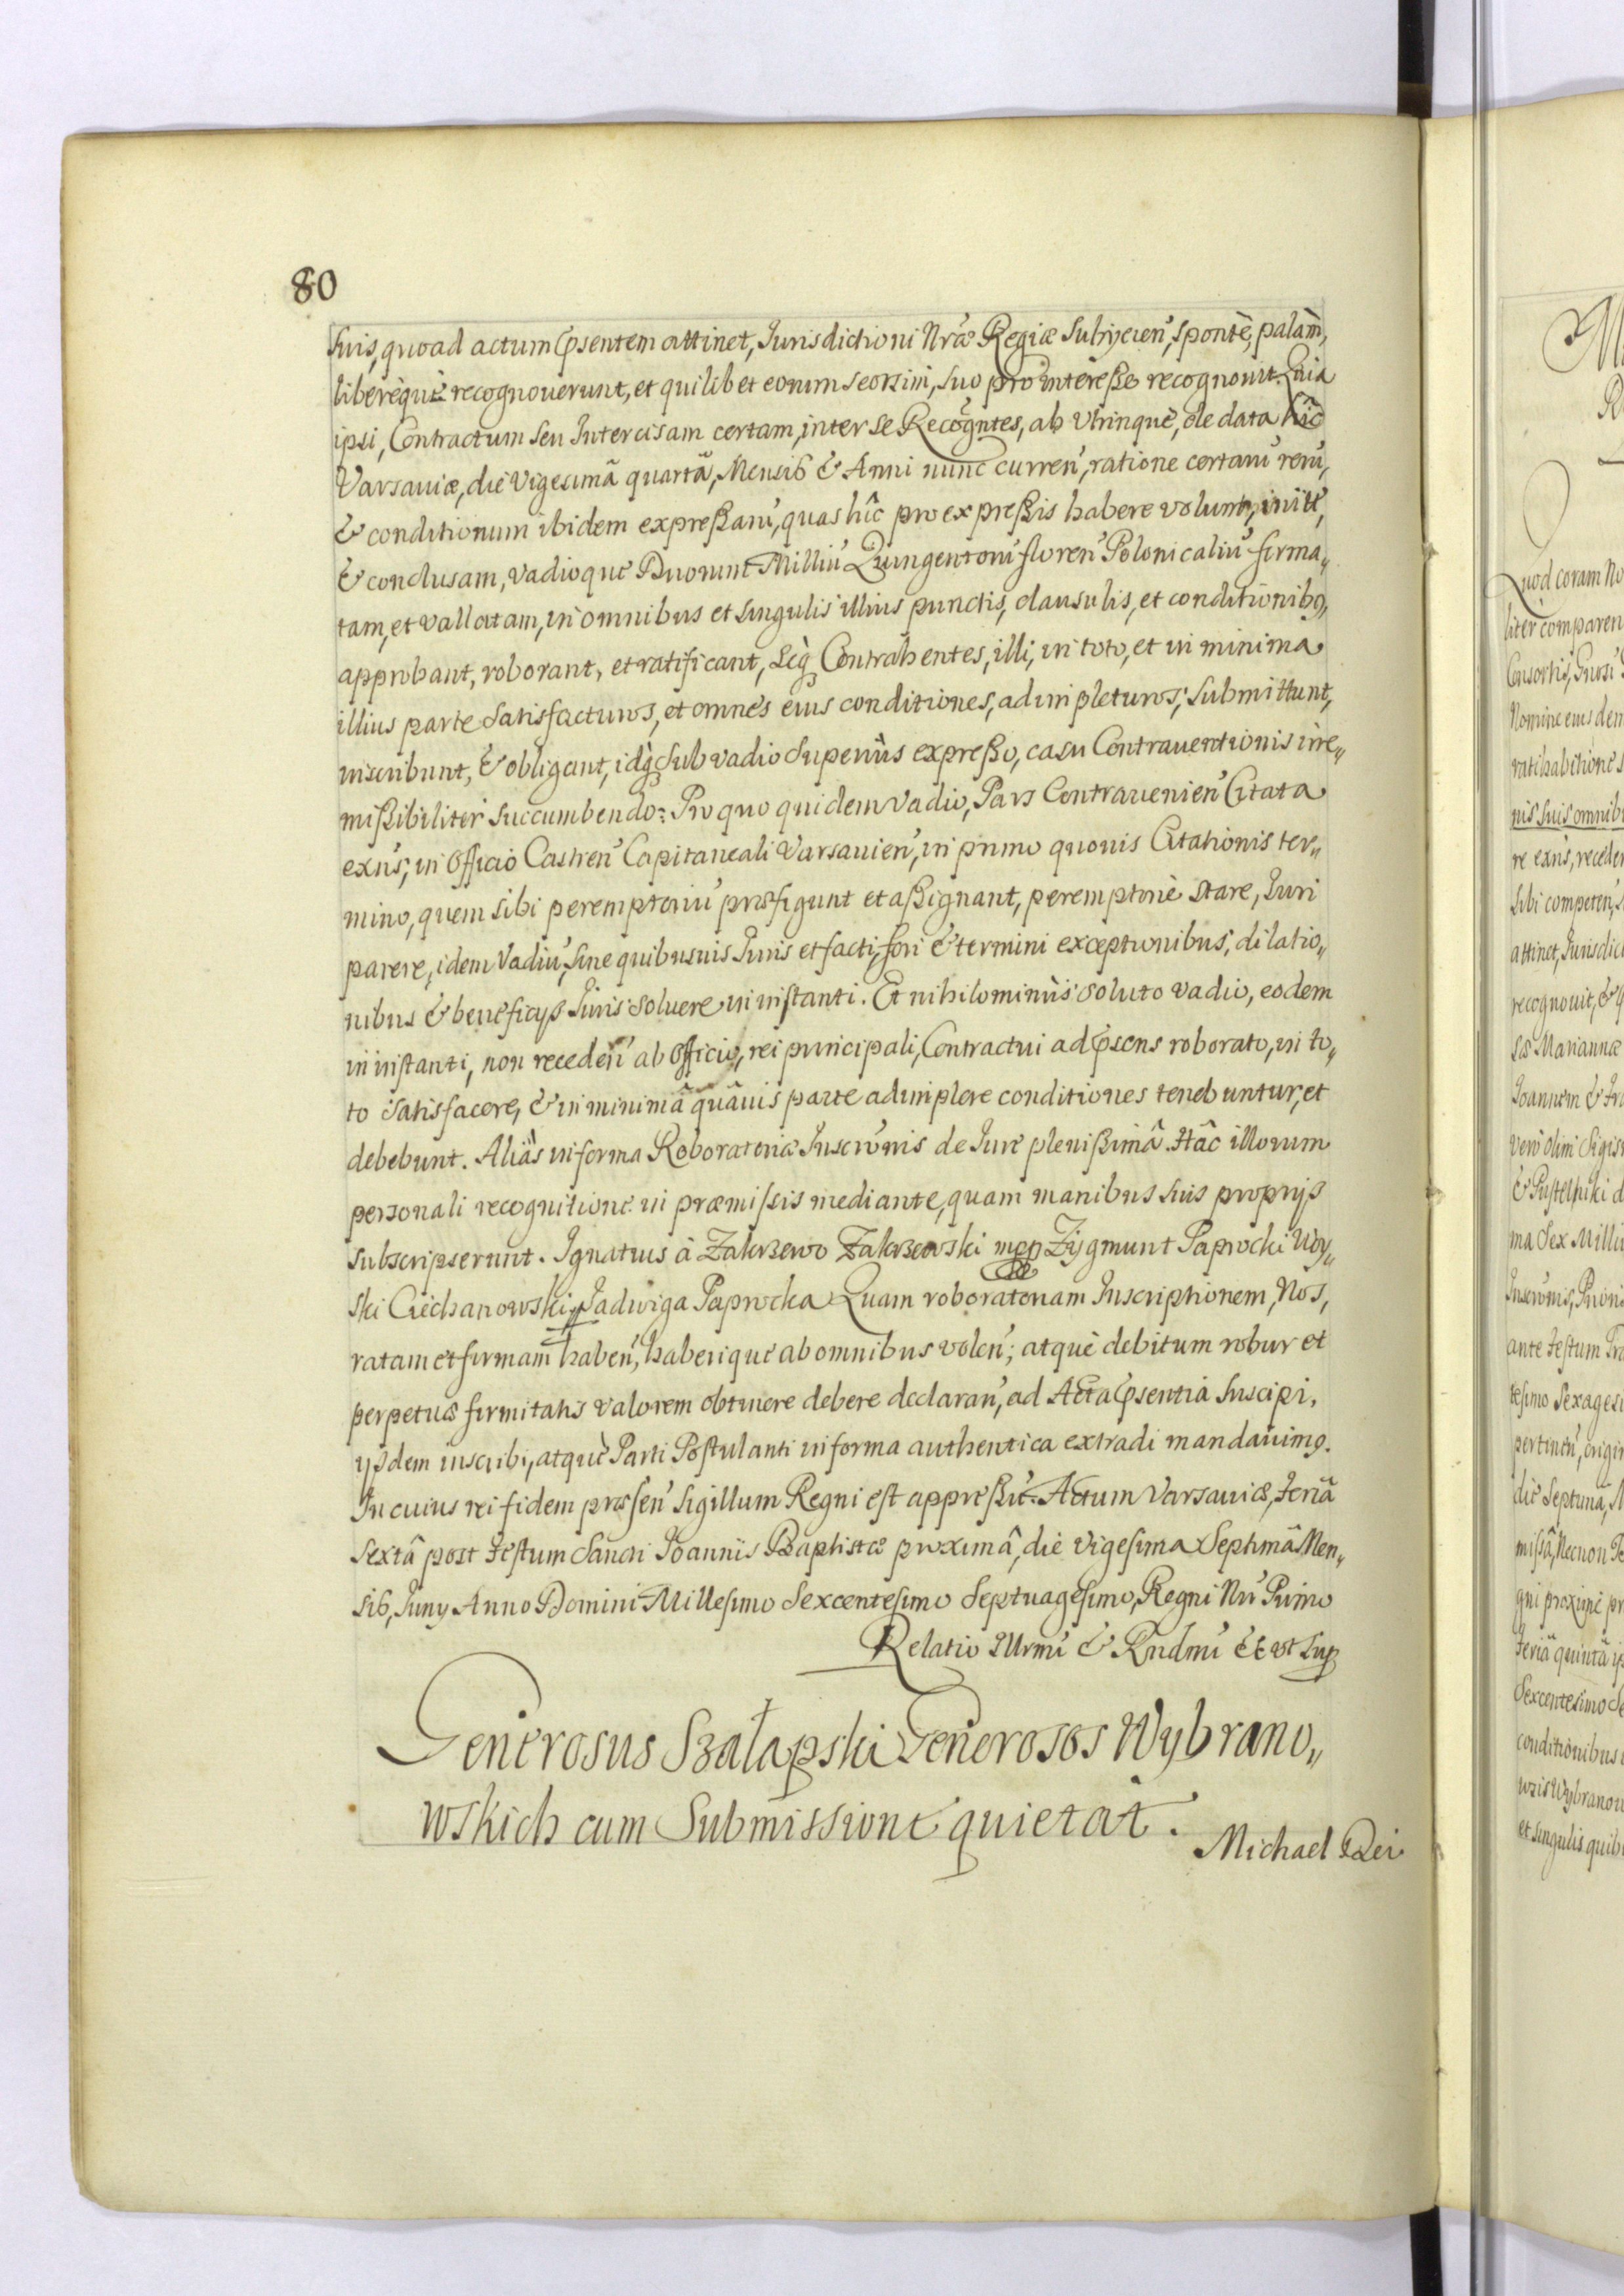 80
suis, quoad actum psentem attinet, Jurisdictioni Nræ Regiæ subijcien, spontè, palàm,
liberèque recognouerunt, et quilibet eorum seorsim, suo pro interesse recognouit. Quia
ipsi, Contractum seu Intercisam certam, inter se Recogntes, ab vtrinque, de data hîc
Varsauiæ, die Vigesimâ quartâ, Mensis & Anni nunc curren, ratione certaru reru,
& conditionum ibidem expressaru, quas hîc pro expressis habere volunt, initã,
& conclusam, vadioque Duorum Milliu Quingentoru floren Polonicaliu firma„
tam, et vallatam, in omnibus et singulis illius punctis, clausulis, et conditionibq,
approbant, roborant, et ratificant, seq Contrahentes, illi, in toto, et in minima
illius parte satisfacturos, et omnes eius conditiones, adimpleturos, submittunt,
inscribunt, & obligant, idq sub vadio superius expresso, casu Contrauentionis irre„
missibiliter succumbendo: Pro quo quidem vadio, Pars Contrauenien Citata
exns, in Officio Castren Capitaneali Varsauien, in primo quouis Citationis ter„
mino, quem sibi peremptoriu præfigunt et assignant, peremptoriè stare, Juri
parere, idem Vadiu, sine quibusuis Juris et facti, fori & termini exceptionibus, dilatio„
nibus & beneficijs Juris soluere in instanti. Et nihilominùs soluto vadio, eodem
in instanti, non receden ab Officio, rei principali, Contractui ad psens roborato, in to„
to satisfacere, & in minimâ quâuis parte adimplere conditiones tenebuntur, et
debebunt. Aliàs in forma Roboratoriæ Inscrõnis de Jure plenissimâ. Hâc illorum
personali recognitione in præmissis mediante, quam manibus suis proprijs
subscripserunt. Ignatius à Zakrzewo Zakrzewski mpp Zygmunt Paprocki Woy„
ski Ciechanowski Jadwiga Paprocka Quam roboratoriam Inscriptionem, Nos,
ratam et firmam haben, haberique ab omnibus volen; atquè debitum robur et
perpetuæ firmitatis valorem obtinere debere declaran, ad Acta psentia suscipi,
ijsdem inscribi, atquè Parti Postulanti in forma authentica extradi mandauimq.
In cuius rei fidem præsen sigillum Regni est appressu. Actum Varsauiæ, feriâ
sextâ post festum Sancti Joannis Baptistæ proximâ, die Vigesima Septimâ Men„
sis, Juny Anno Domini Millesimo Sexcentesimo Septuagesimo, Regni Nri Primo
Relatio Illrmi & Rndmi &c vt sup
Generosus Szałapski Generosos Wybrano„
wskich cum Submissione quietat.
Michael Dei
Quod coram No
liter comparen
Nomine eius dem
ratihabitione
nis suis omnib
re exns, receden
sibi competen,
attinet, Jurisdic
recognouit, &
sæ Mariannæ
Joannem &
verò olim Sigis
& Pustelniki d
ma Sex Milli
ante festum
tesimo Sexagesi
pertinen, origin
die Septimâ,
missâ, Necnon
gni proximè pr
feriâ quintâ ip
Sexcentesimo Se
conditionibus
wzis Wybranow
et singulis quib